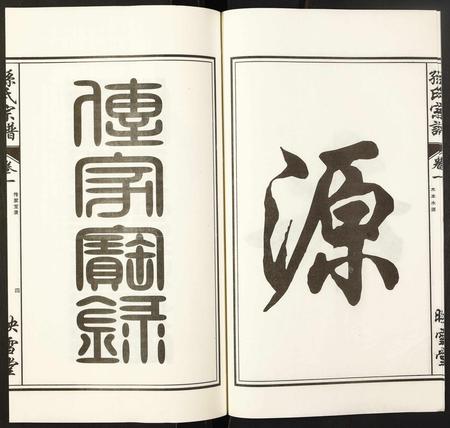 孫氏宗譜
卷一
木本水源
映雪堂
源
傳家寶錄
孫氏宗譜
卷一
傳家寶錄
四
映雪堂